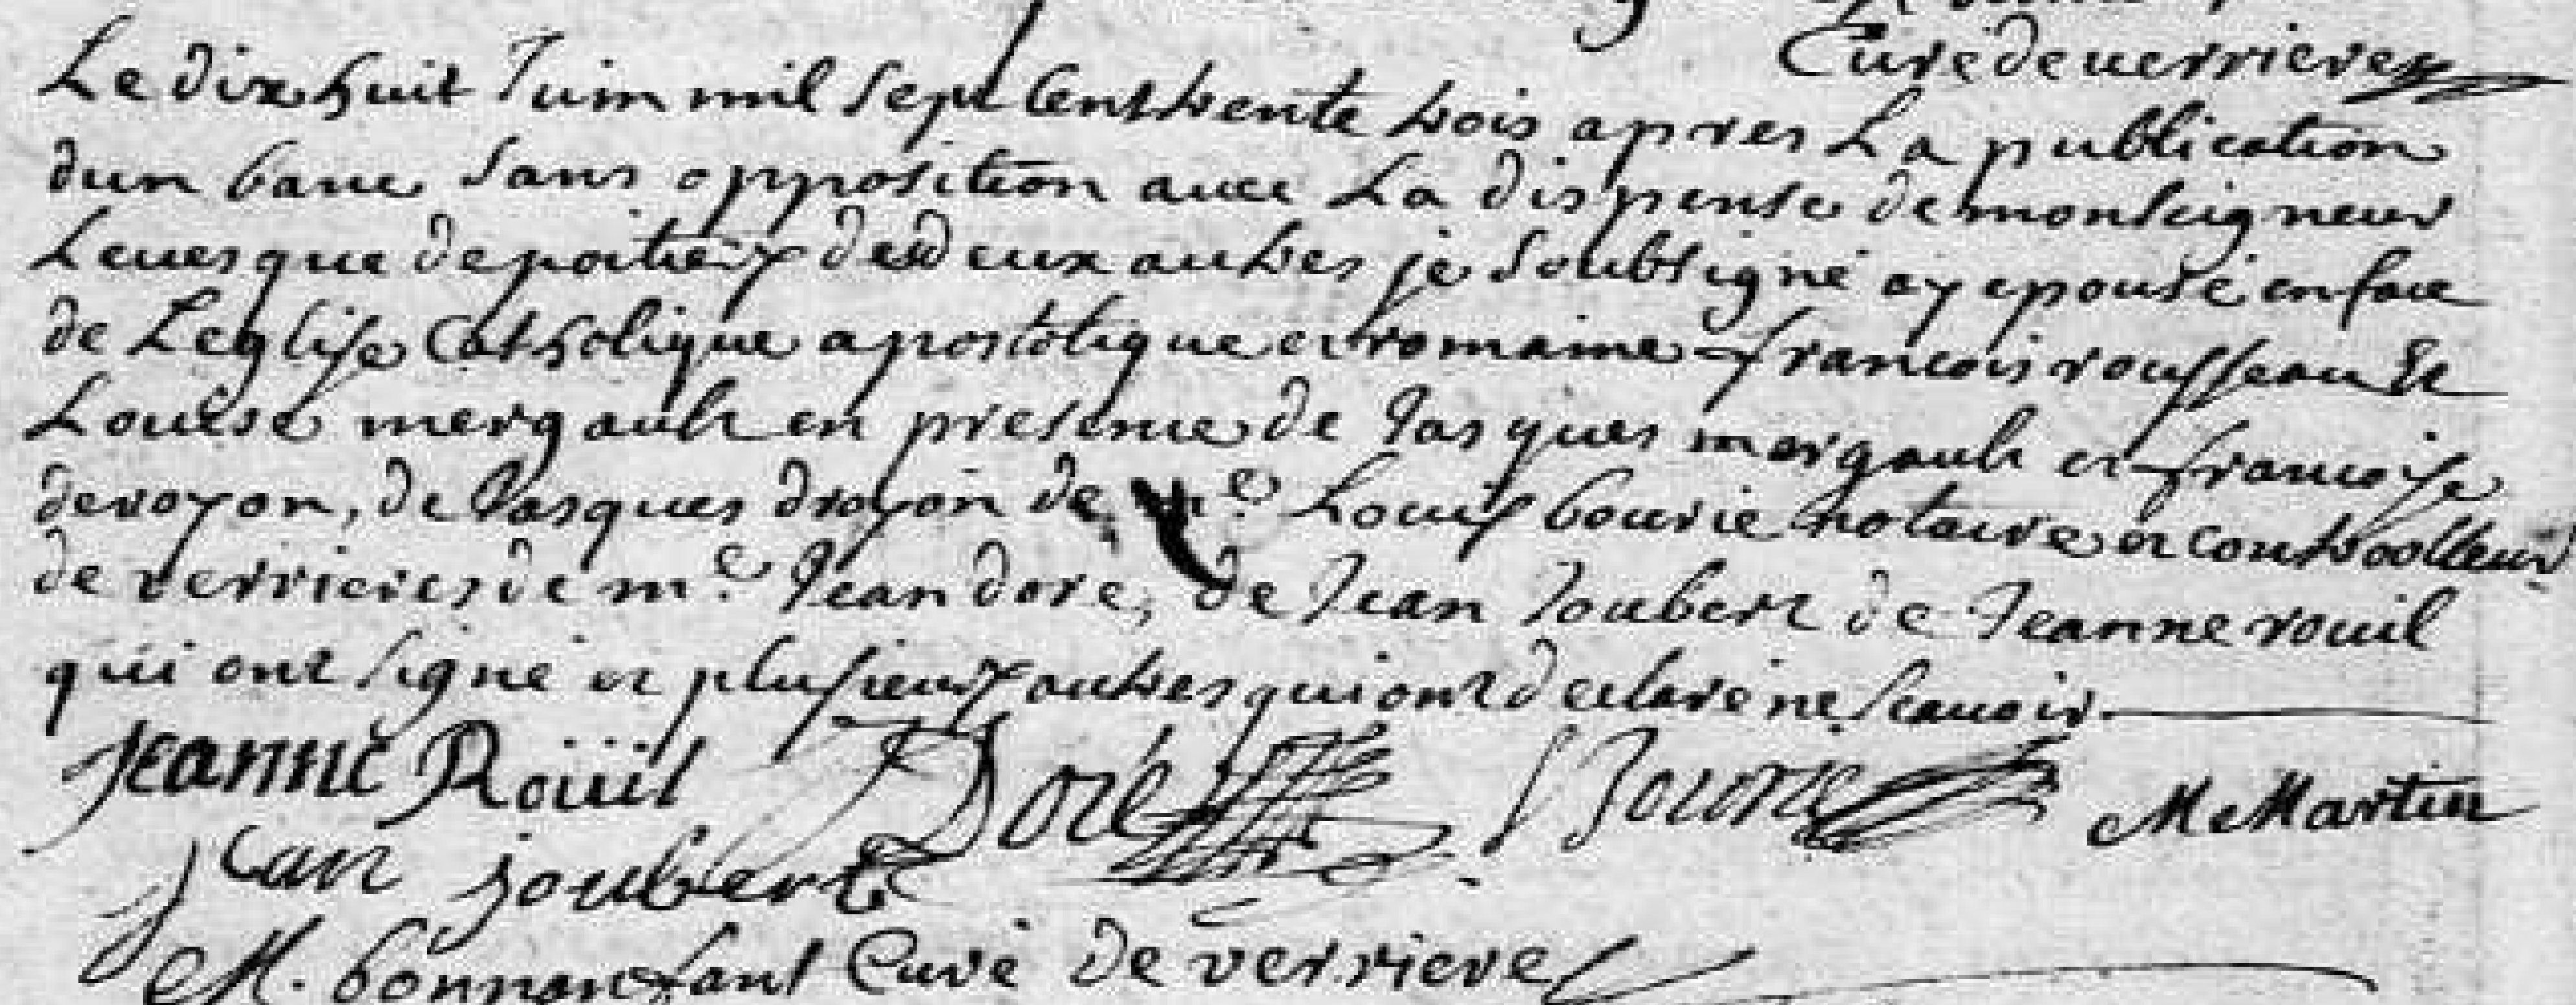 Curé de verrieres
Le dix huit Juin mil sept Cent trente trois apres La publication
dun banc sans opposition avec La dispense de monseigneur
Levesque de poitiers des deux autres je soubsigné ay epousé en face
de Leglise Catholique apostolique et romaine francois rousseau Et
Louise mergault en presence de Jasques mergault et francoise
devoyon, de Jasques droyon de me. Louis bourie notaire et controolleur
de verrieres de me. Jean doré, de Jean Joubert de Jeanne rouil
qui ont signé et plusieurs autres qui ont declaré ne scauoir.
Jeanne Roüil Doré Bourie M Martin
Jean joubert
M. bonnenfant Curé de verriere